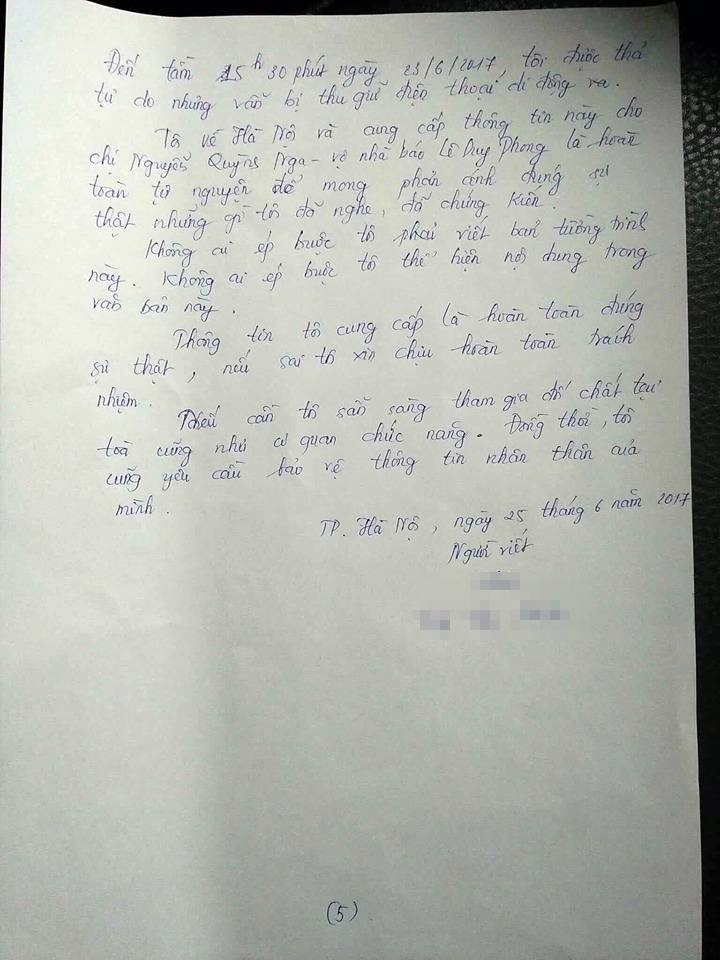 Đến tầm 15h30 phút ngày 23/6/2017, tôi được thả
tự do nhưng vẫn bị thu giữ điện thoại di động ra.
Tôi về Hà Nội và cung cấp thông tin này cho
chị Nguyễn Quỳnh Nga - vợ nhà báo Lê Duy Phong là hoàn
toàn tự nguyện để mong phản ánh đúng sự
thật những gì tôi đã nghe, đã chứng kiến.
Không ai ép buộc tôi phải viết bản tường trình
này. Không ai ép buộc tôi thể hiện nội dung trong
văn bản này.
Thông tin tôi cung cấp là hoàn toàn đúng
sự thật, nếu sai tôi xin chịu hoàn toàn trách
nhiệm.
Nếu cần tôi sẵn sàng tham gia đối chất tại
toà cũng như cơ quan chức năng. Đồng thời, tôi
cũng yêu cầu bảo vệ thông tin nhân thân của
mình.
TP. Hà Nội, ngày 25 tháng 6 năm 2017
Người viết
(5)